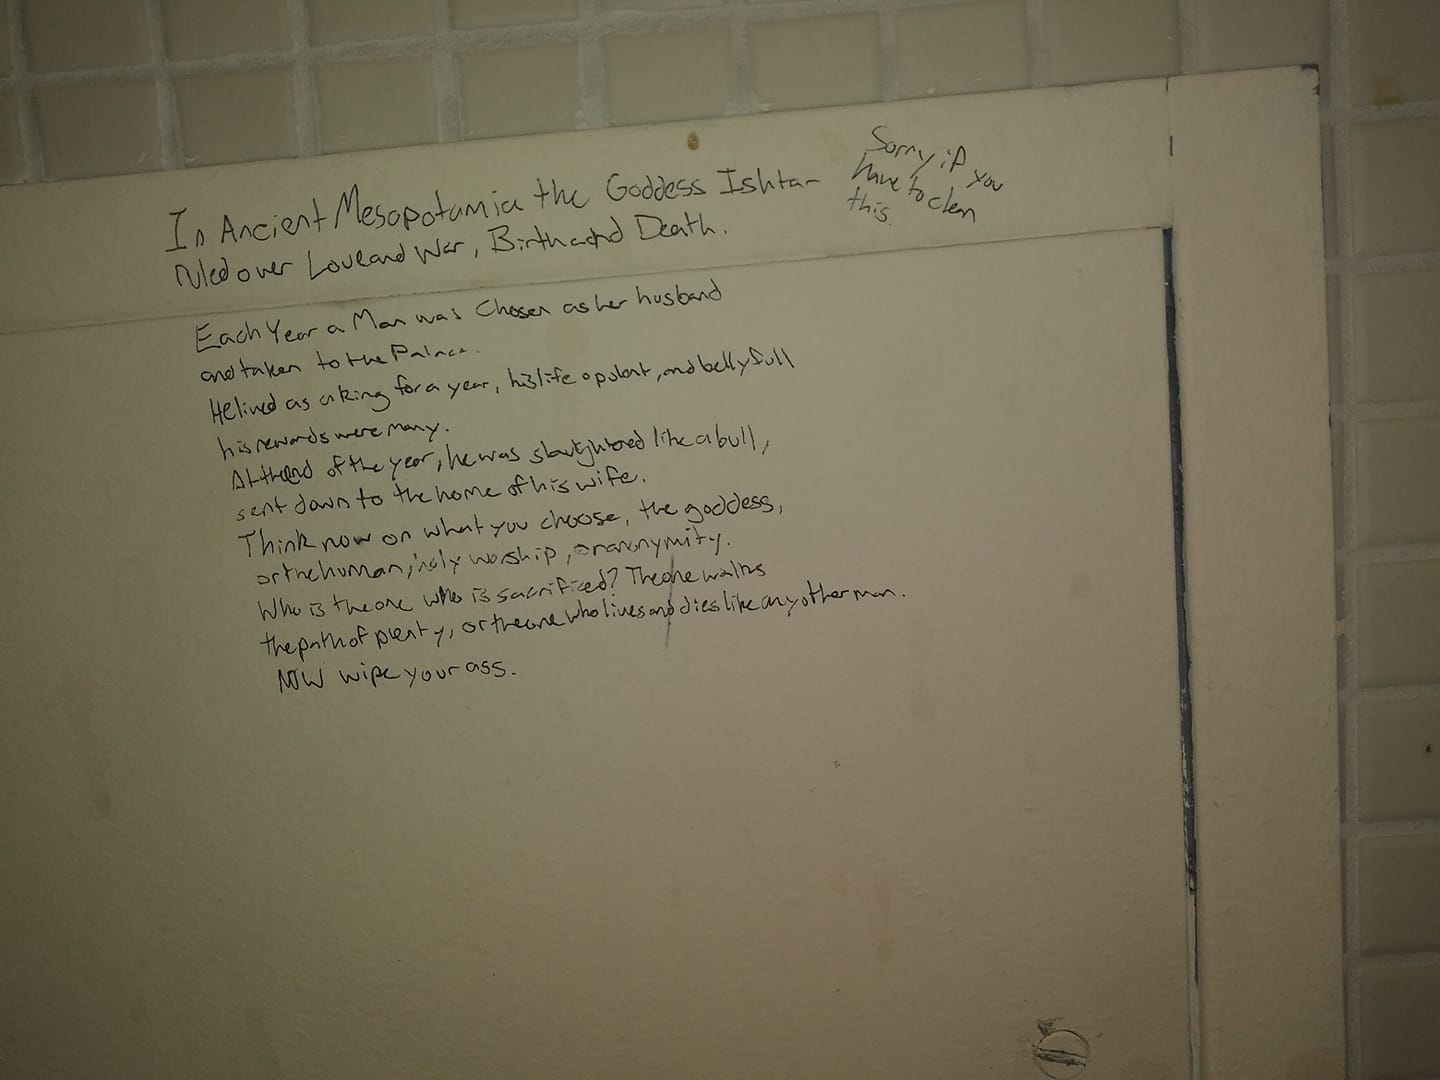 In Ancient Mesopotamia the Goddess Ishtar
ruled over Love and War, Birth and Death.
Sorry if you
have to clean
this.
Each Year a Man was Chosen as her husband
and taken to the Palace.
He lived as a king for a year, his life opulent, and belly full
his rewards were many.
At the end of the year, he was slaughtered like a bull,
sent down to the home of his wife.
Think now on what you choose, the goddess,
or the human, holy worship, or anonymity.
Who is the one who is sacrificed? The one walks
the path of plenty, or the one who lives and dies like any other man.
NOW wipe your ass.